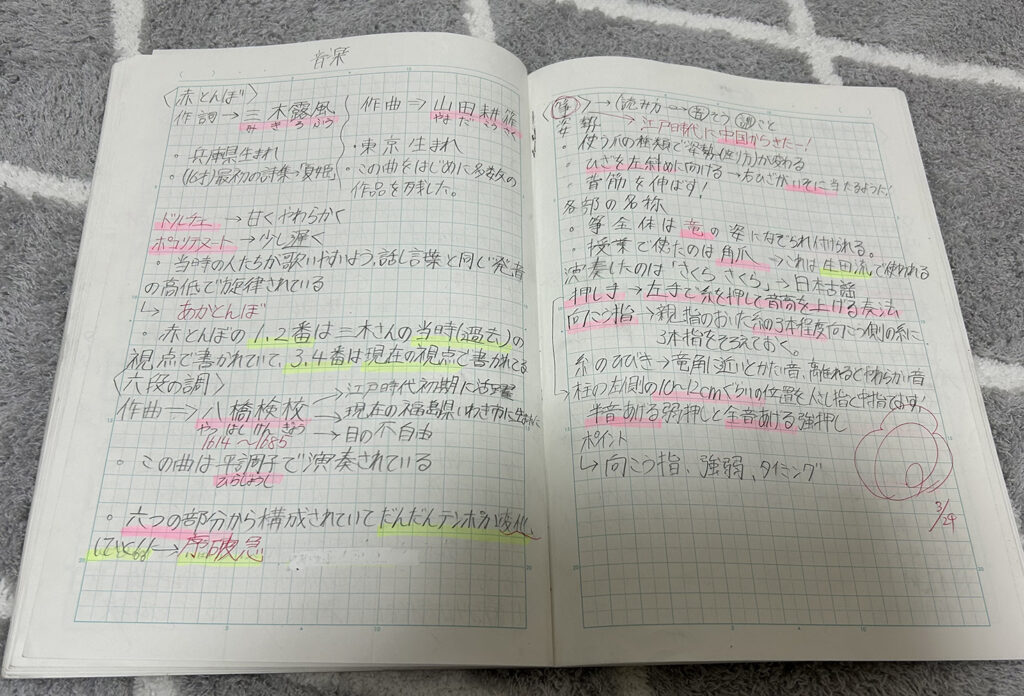 音楽
〈赤とんぼ〉
作詞→三木露風
みきろふう
・兵庫県生まれ
・(16才)最初の詩集「夏姫」
作曲⇒山田耕筰
やまだこうさく
・東京生まれ
・この曲をはじめに多数の
作品を残した。
ドルチェ→甘くやわらかく
ポコリテヌート→少し遅く
・当時の人たちが歌いやすいよう、話し言葉と同じ発音
の高低で旋律されている
↳あかとんぼ
・赤とんぼの1,2番は三木さんの当時(過去)の
視点で書かれていて、3,4番は現在の視点で書かれてる
〈六段の調〉
作曲⇒八橋検校
やつはしけんぎょう
1614〜1685
→江戸時代初期に活躍
→現在の福島県いわき市に生まれた
→目の不自由
・この曲は平調子で演奏されている
ひらじょうし
・六つの部分から構成されていてだんだんテンポが変化
していくよ→序破急
〈箏〉→読み方→音そう 訓こと
→江戸時代に中国からきたー!
姿勢
・使う爪の種類で姿勢(座り方)が変わる
・ひざを左斜めに向ける→右ひざがいそに当たるように!
・背筋を伸ばす!
各部の名称
・箏全体は竜の姿になぞられ付けられる。
・授業で使たのは角爪→これは生田流で使われる
演奏したのは「さくらさくら」→日本古謡
押し手→左手で糸を押して音高を上げる奏法
向こう指→親指のおいた糸の3本程度向こう側の糸に
3本指をそろえておく。
糸のひびき→竜角に近いとかたい音、離れるとやわらかい音
→柱の左側の10〜12cmくらいの位置を人さし指と中指でおす!
半音あげる弱押しと全音あげる強押し
ポイント
↳向こう指、強弱、タイミング
3/24